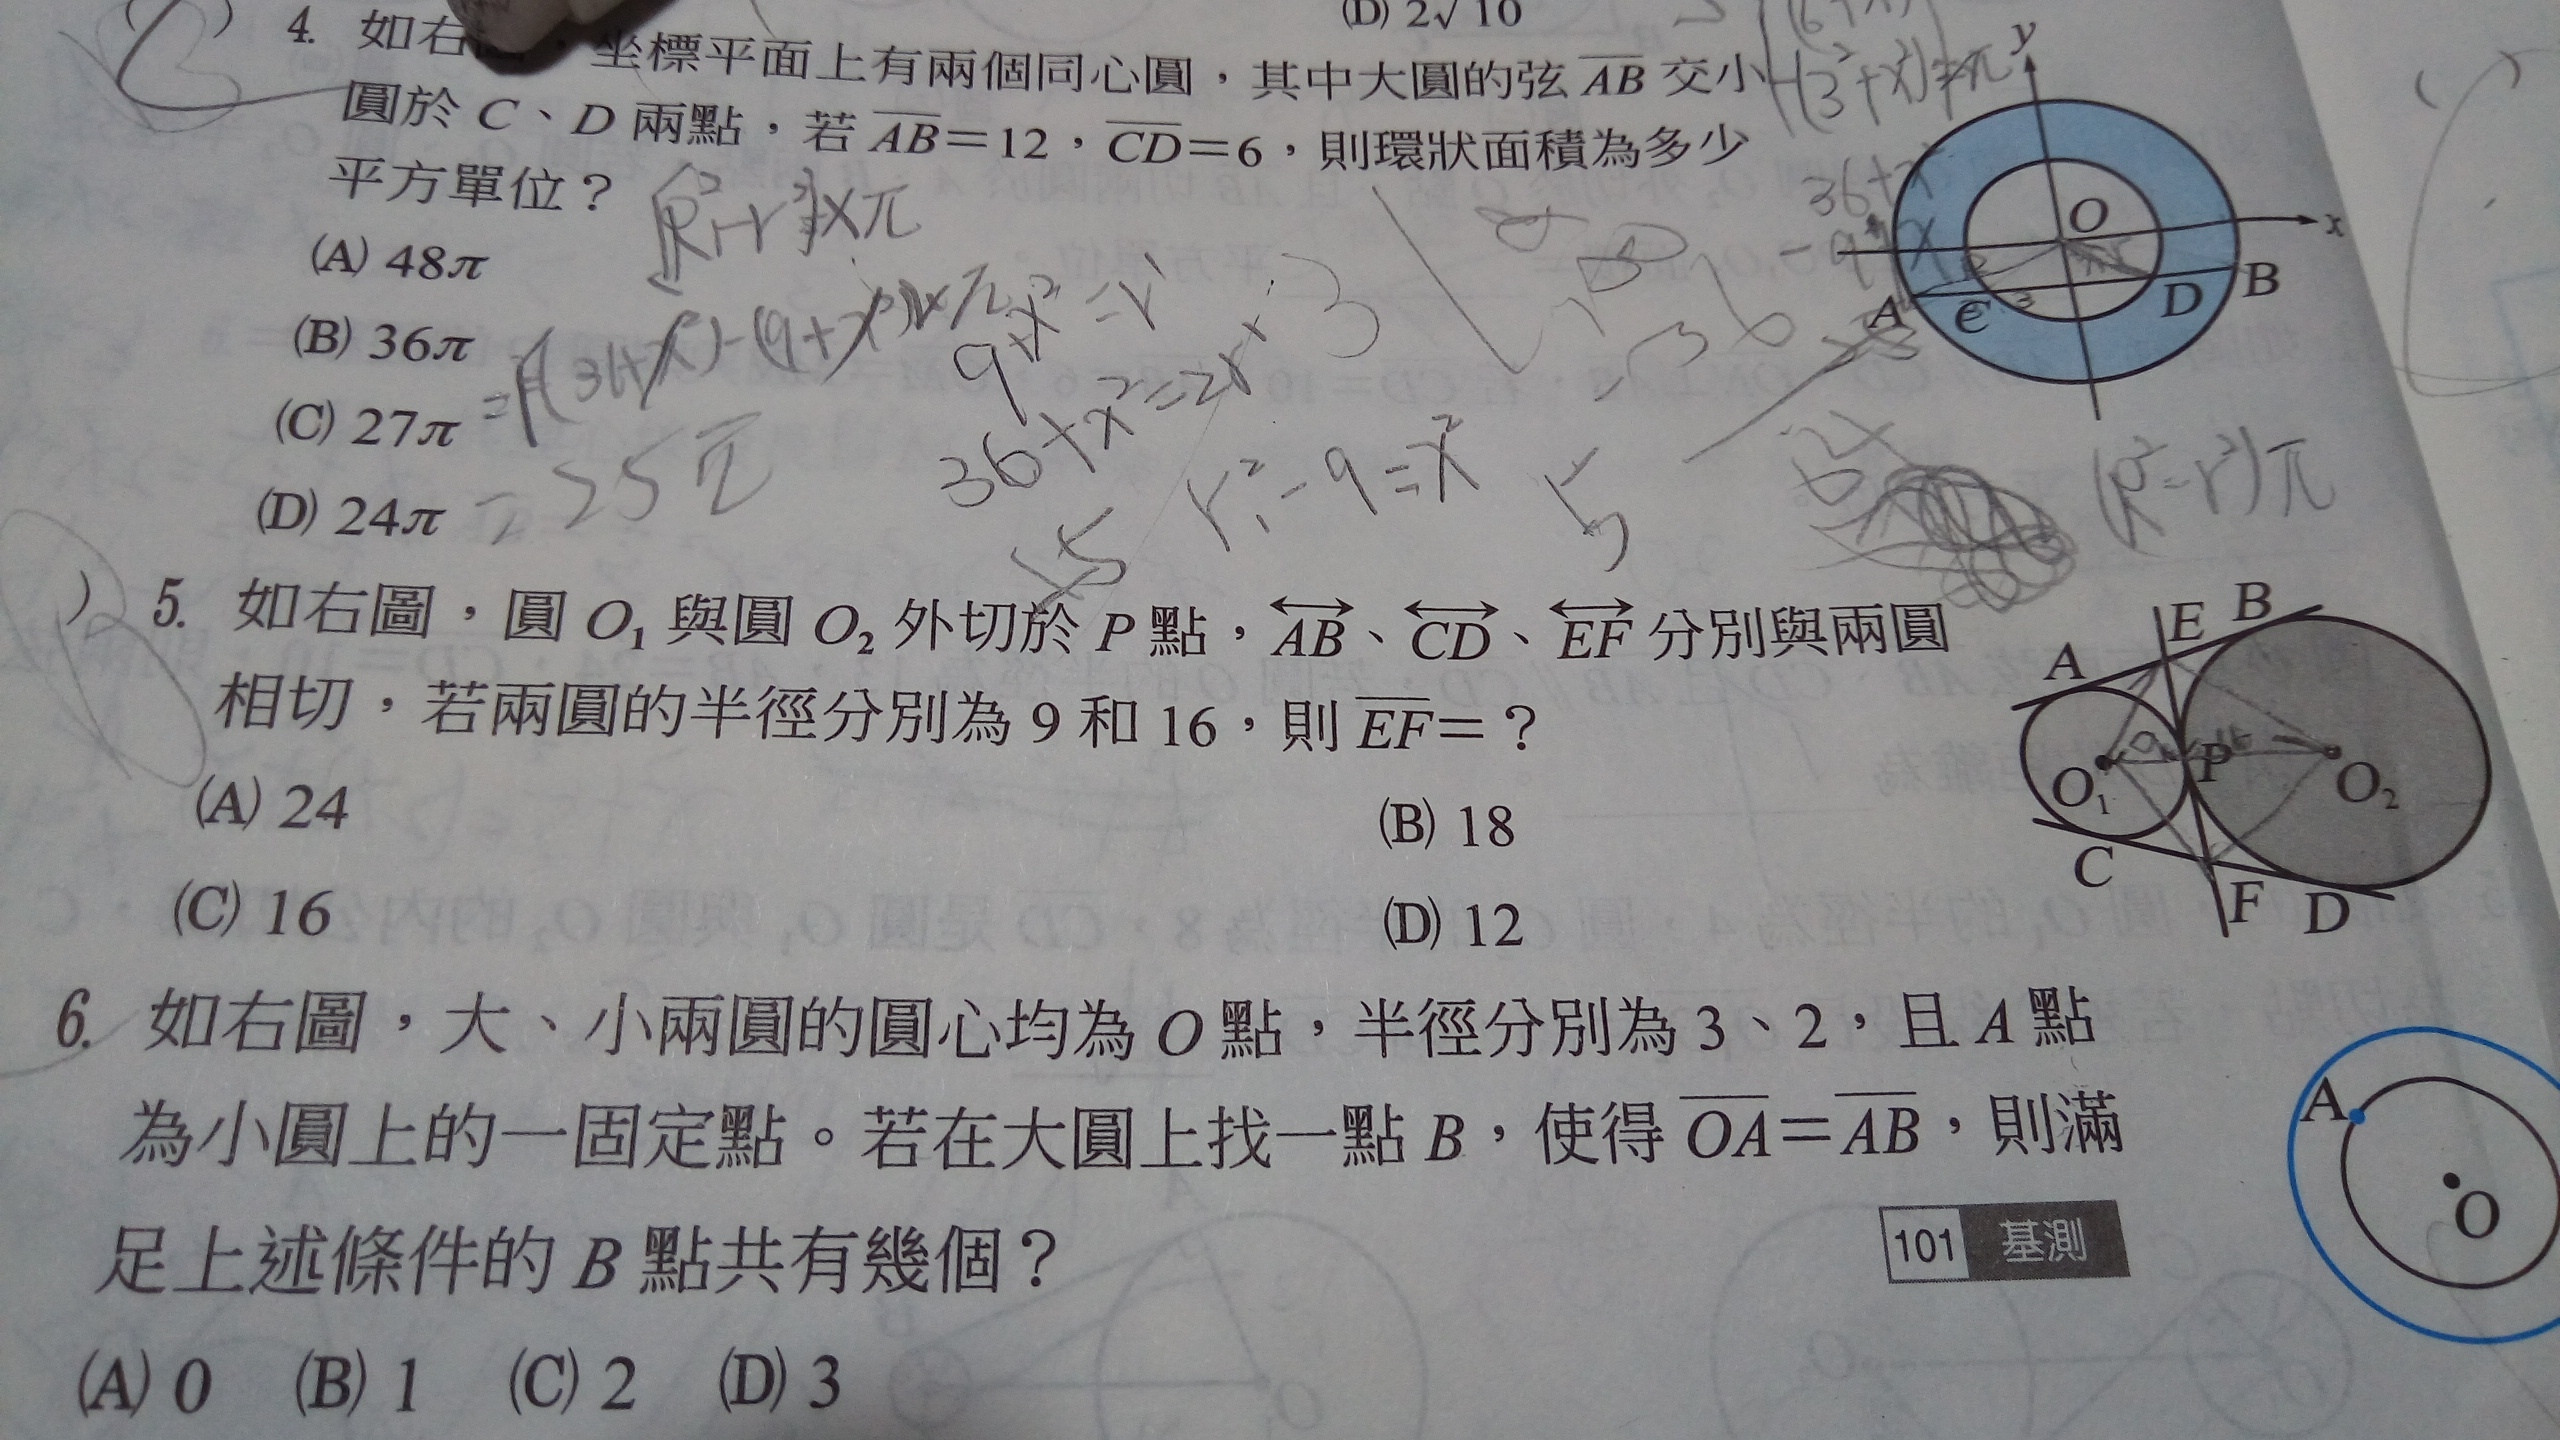 (D) 2√10
4. 如右，坐標平面上有兩個同心圓，其中大圓的弦 AB 交小
圓於 C、D 兩點，若 AB=12，CD=6，則環狀面積為多少
平方單位？
(A) 48π
(B) 36π
(C) 27π
(D) 24π
y
x
O
A
C
D
B
(R²-r²)×π
9+x²=r²
36+x²
=25π
(R²-r²)π
5. 如右圖，圓 O₁ 與圓 O₂ 外切於 P 點，AB、CD、EF 分別與兩圓
相切，若兩圓的半徑分別為 9 和 16，則 EF=？
(A) 24
(B) 18
(C) 16
(D) 12
A
E
B
O₁
P
O₂
C
F
D
6. 如右圖，大、小兩圓的圓心均為 O 點，半徑分別為 3、2，且 A 點
為小圓上的一固定點。若在大圓上找一點 B，使得 OA=AB，則滿
足上述條件的 B 點共有幾個？
101 基測
(A) 0 (B) 1 (C) 2 (D) 3
A
O